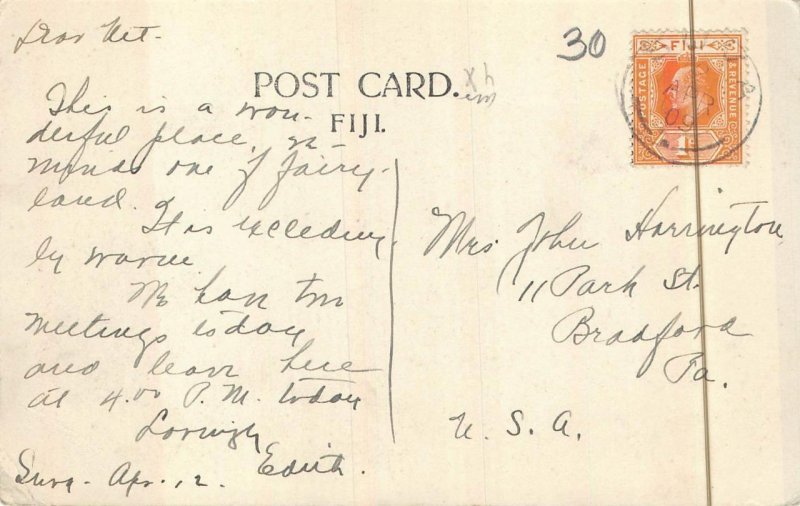 Dear Net-
30
POST CARD.
FIJI.
This is a won-
derful place, re-
minds one of fairy-
land.
It is exceeding
ly warm
We have two
meetings today
and leave here
at 4.00 P.M. today
Lovingly
Edith.
Suva - Apr. 12.
FIJI
POSTAGE
& REVENUE
AP
09
Mrs John Harrington
11 Park St.
Bradford
Pa.
U. S. A.